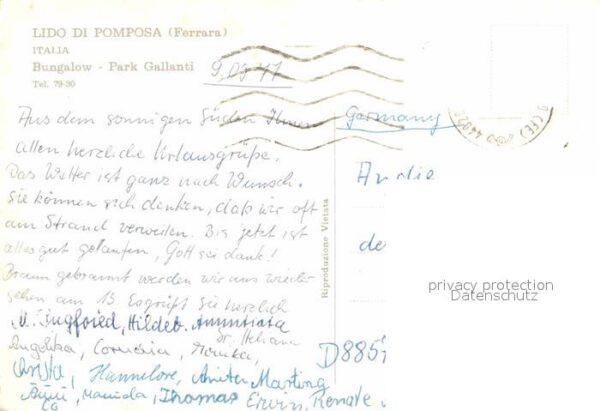 LIDO DI POMPOSA (Ferrara)
ITALIA
Bungalow - Park Gallanti
Tel. 79-30
9.09.77
Aus dem sonnigen Süden Ihnen
allen herzliche Urlausgrüße.
Das Wetter ist ganz nach Wunsch.
Sie können sich denken, daß wir oft
am Strand verweilen. Bis jetzt ist
alles gut gelaufen, Gott sei dank!
Braun gebrannt werden wir uns wieder
sehen am 13 Es grüßt Sie herzlich
Siegfried, Hildeb. Annuntiata
Sr. Heliana
Angelika, Cornelia, Monika,
Christa, Hannelore, Anita Martina
Manuela, Thomas Erwin, Renate
Riproduzione Vietata
Germany
An die
de
D 885
privacy protection
Datenschutz